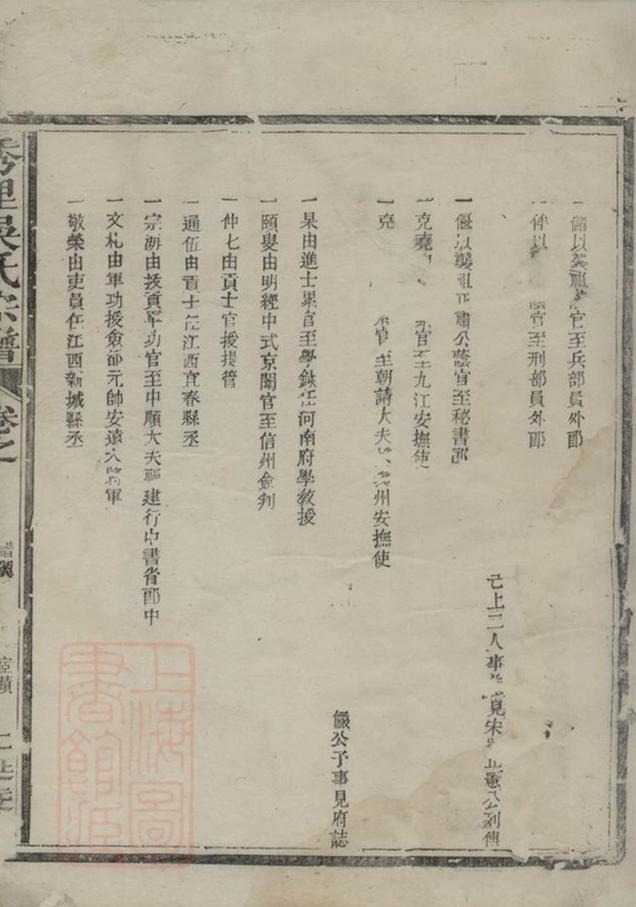 一儼以襲祖 官至兵部員外郎
一 以 官至刑部員外郎
已上二人事 見宋 正肅公列傳
一偃以襲祖正肅公蔭官至秘書郎
一克堯 官至九江安撫使
一克 官至朝請大夫 州安撫使
儼公子事見府誌
一杲由進士累官至學錄任河南府學教授
一頤叟由明經中式京闈官至信州僉判
一仲七由貢士官授提管
一通伍由貢士任江西宜春縣丞
一宗海由拔貢軍功官至中順大夫福建行中書省郎中
一文札由軍功授僉都元帥安遠大將軍
一敬榮由吏員任江西新城縣丞
秀里吳氏宗譜
卷之
上海圖書館藏